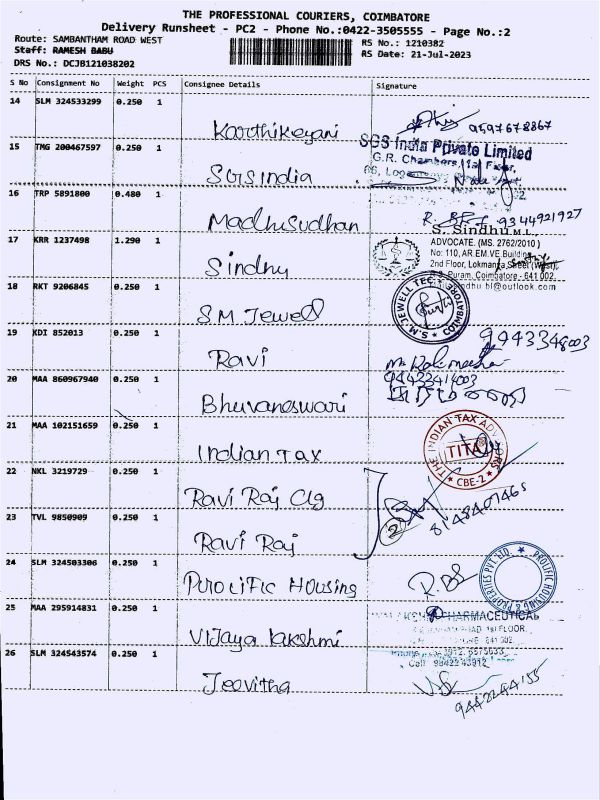 THE PROFESSIONAL COURIERS, COIMBATORE
Delivery Runsheet - PC2 - Phone No.:0422-3505555 - Page No.:2
Route: SAMBANTHAM ROAD WEST
RS No.: 1210382
Staff: RAMESH BABU
RS Date: 21-Jul-2023
DRS No.: DCJB121038202
S No Consignment No Weight PCS Consignee Details Signature
14 SLM 324533299 0.250 1
Karthikeyani
9597678867
15 TMG 200467597 0.250 1
SGS India Private Limited
G.R. Chambers, 1st Floor,
SGS India
16 TRP 5891800 0.480 1
Madhusudhan
9344921927
17 KRR 1237498 1.290 1
S. Sindhu M.L
ADVOCATE. (MS. 2762/2010 )
No: 110, AR.EM.VE.Building
2nd Floor, Lokmanya Street (West),
R.S. Puram, Coimbatore - 641 002.
Sindhu
18 RKT 9206845 0.250 1
S.M Jewel
S.M. JEWELL TEC COIMBATORE
19 KDI 852013 0.250 1
Ravi
9943348003
20 MAA 860967940 0.250 1
Bhuvaneswari
21 MAA 102151659 0.250 1
Indian Tax
THE INDIAN TAX ADVISORS
TITA
CBE-2
22 NKL 3219729 0.250 1
Ravi Raj Clg
8148401465
23 TVL 9850909 0.250 1
Ravi Raj
2
24 SLM 324503306 0.250 1
Prolific Housing
PROLIFIC HOUSING & PROPERTIES PVT. LTD.
25 MAA 295914831 0.250 1
PHARMACEUTICAL
FLOOR,
Vijaya lakshmi
26 SLM 324543574 0.250 1
Cell: 98422 43912
Jeevitha
9442244155